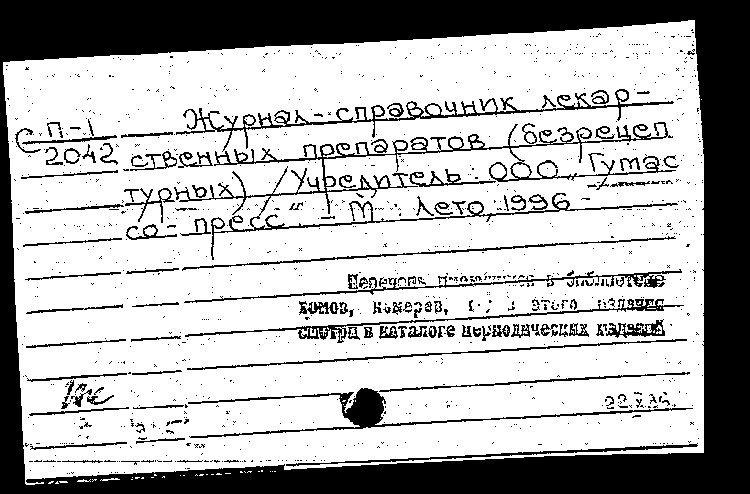 С П-1 Журнал-справочник лекар-
2042 ственных препаратов (безрецеп
турных) / Учредитель: ООО „Гутас
со-пресс“. - М: лето, 1996 -
Перечень имеющихся в библиотеке
томов, номеров, этого издания
смотри в каталоге периодических изданий